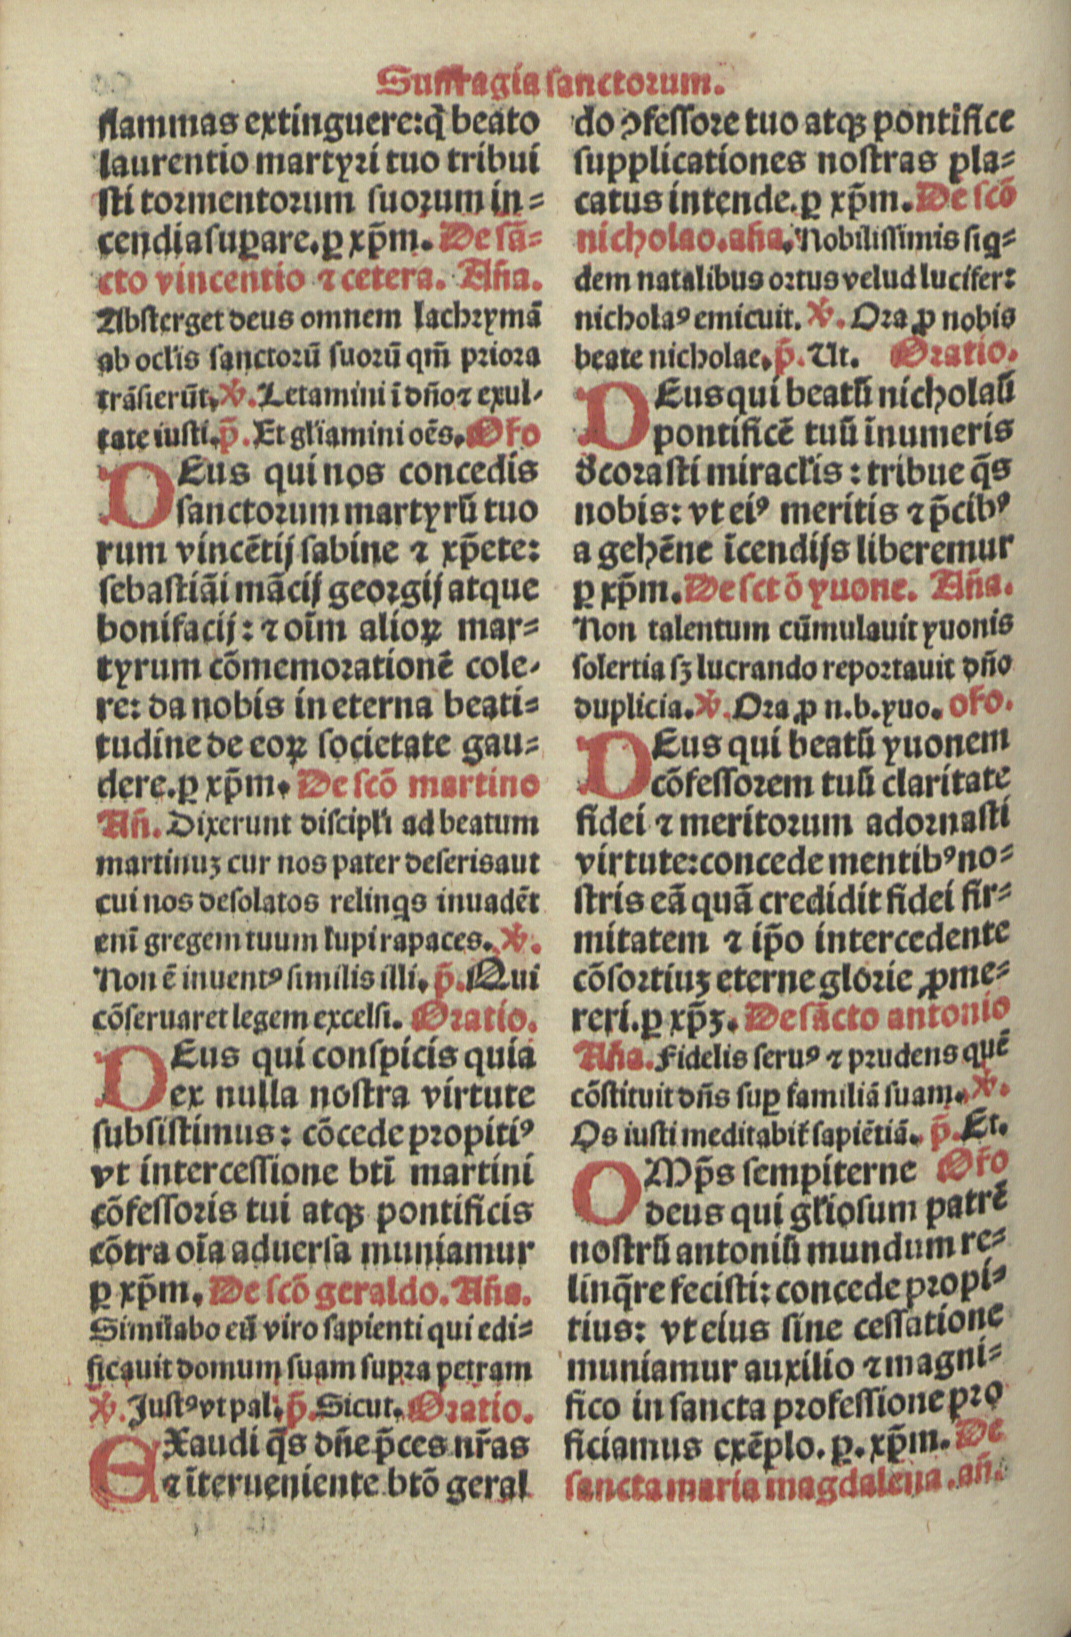 Suffragia sanctorum.
flammas extinguere:q̃ beato
laurentio martyri tuo tribui
sti tormentorum suorum in-
cendia suꝑare.ꝑ xp̄m. De sā-
cto vincentio ⁊ cetera. Añā.
Absterget deus omnem lachrymā
ab oclīs sanctorū suorū qm̄ priora
trāsierūt. ℣. Letamini ī dño ⁊ exul-
tate iusti. p̄. Et gl̄iamini oēs. Oŕo
DEus qui nos concedis
sanctorum martyrū tuo
rum vincētij sabine ⁊ xp̄ete:
sebastiāi mācij georgij atque
bonifacij: ⁊ oīm alioꝝ mar-
tyrum cōmemorationē cole-
re: da nobis in eterna beati-
tudine de eoꝝ societate gau-
dere.ꝑ xp̄m. De scō martino
Añ. Dixerunt discipl̄i ad beatum
martinuꝫ cur nos pater deseris aut
cui nos desolatos relinq̄s inuadēt
enī gregem tuum lupi rapaces. ℣.
Non ē inuentꝰ similis illi. p̄. Qui
cōseruaret legem excelsi. Oratio.
DEus qui conspicis quia
ex nulla nostra virtute
subsistimus: cōcede propitiꝰ
vt intercessione btī martini
cōfessoris tui atqꝫ pontificis
cōtra oīa aduersa muniamur
ꝑ xp̄m. De scō geraldo. Aña.
Similabo eū viro sapienti qui edi-
ficauit domum suam supra petram
℣. Justꝰ vt pal. p̄. Sicut. Oratio.
EXaudi q̄s dñe p̄ces nr̄as
⁊ īterueniente btō geral
do ꝯfessore tuo atqꝫ pontifice
supplicationes nostras pla-
catus intende.ꝑ xp̄m. De scō
nicholao. aña. Nobilissimis siq̄-
dem natalibus ortus velud lucifer:
nicholaꝰ emicuit. ℣. Ora ꝓ nobis
beate nicholae. p̄. Ut. Oratio.
DEus qui beatū nicholaū
pontificē tuū īnumeris
d̄corasti miracl̄is: tribue q̄s
nobis: vt eiꝰ meritis ⁊ p̄cibꝰ
a gehēne īcendijs liberemur
ꝑ xp̄m. De sctō yuone. Aña.
Non talentum cūmulauit yuonis
solertia sꝫ lucrando reportauit dño
duplicia. ℣. Ora ꝓ n.b.yuo. oŕo.
DEus qui beatū yuonem
cōfessorem tuū claritate
fidei ⁊ meritorum adornasti
virtute: concede mentibꝰ no-
stris eā quā credidit fidei fir-
mitatem ⁊ ip̄o intercedente
cōsortiuꝫ eterne glorie ꝓme-
reri.ꝑ xp̄ꝫ. De sācto antonio
Aña. Fidelis seruꝰ ⁊ prudens quē
cōstituit dñs suꝑ familiā suam. ℣.
Os iusti meditabiť sapiētiā. p̄. Et.
OMp̄s sempiterne Oŕo
deus qui gl̄iosum patrē
nostrū antoniū mundum re-
linq̄re fecisti: concede propi-
tius: vt eius sine cessatione
muniamur auxilio ⁊ magni-
fico in sancta professione pro
ficiamus exēplo. ꝑ. xp̄m. De
sancta maria magdalena. añ.